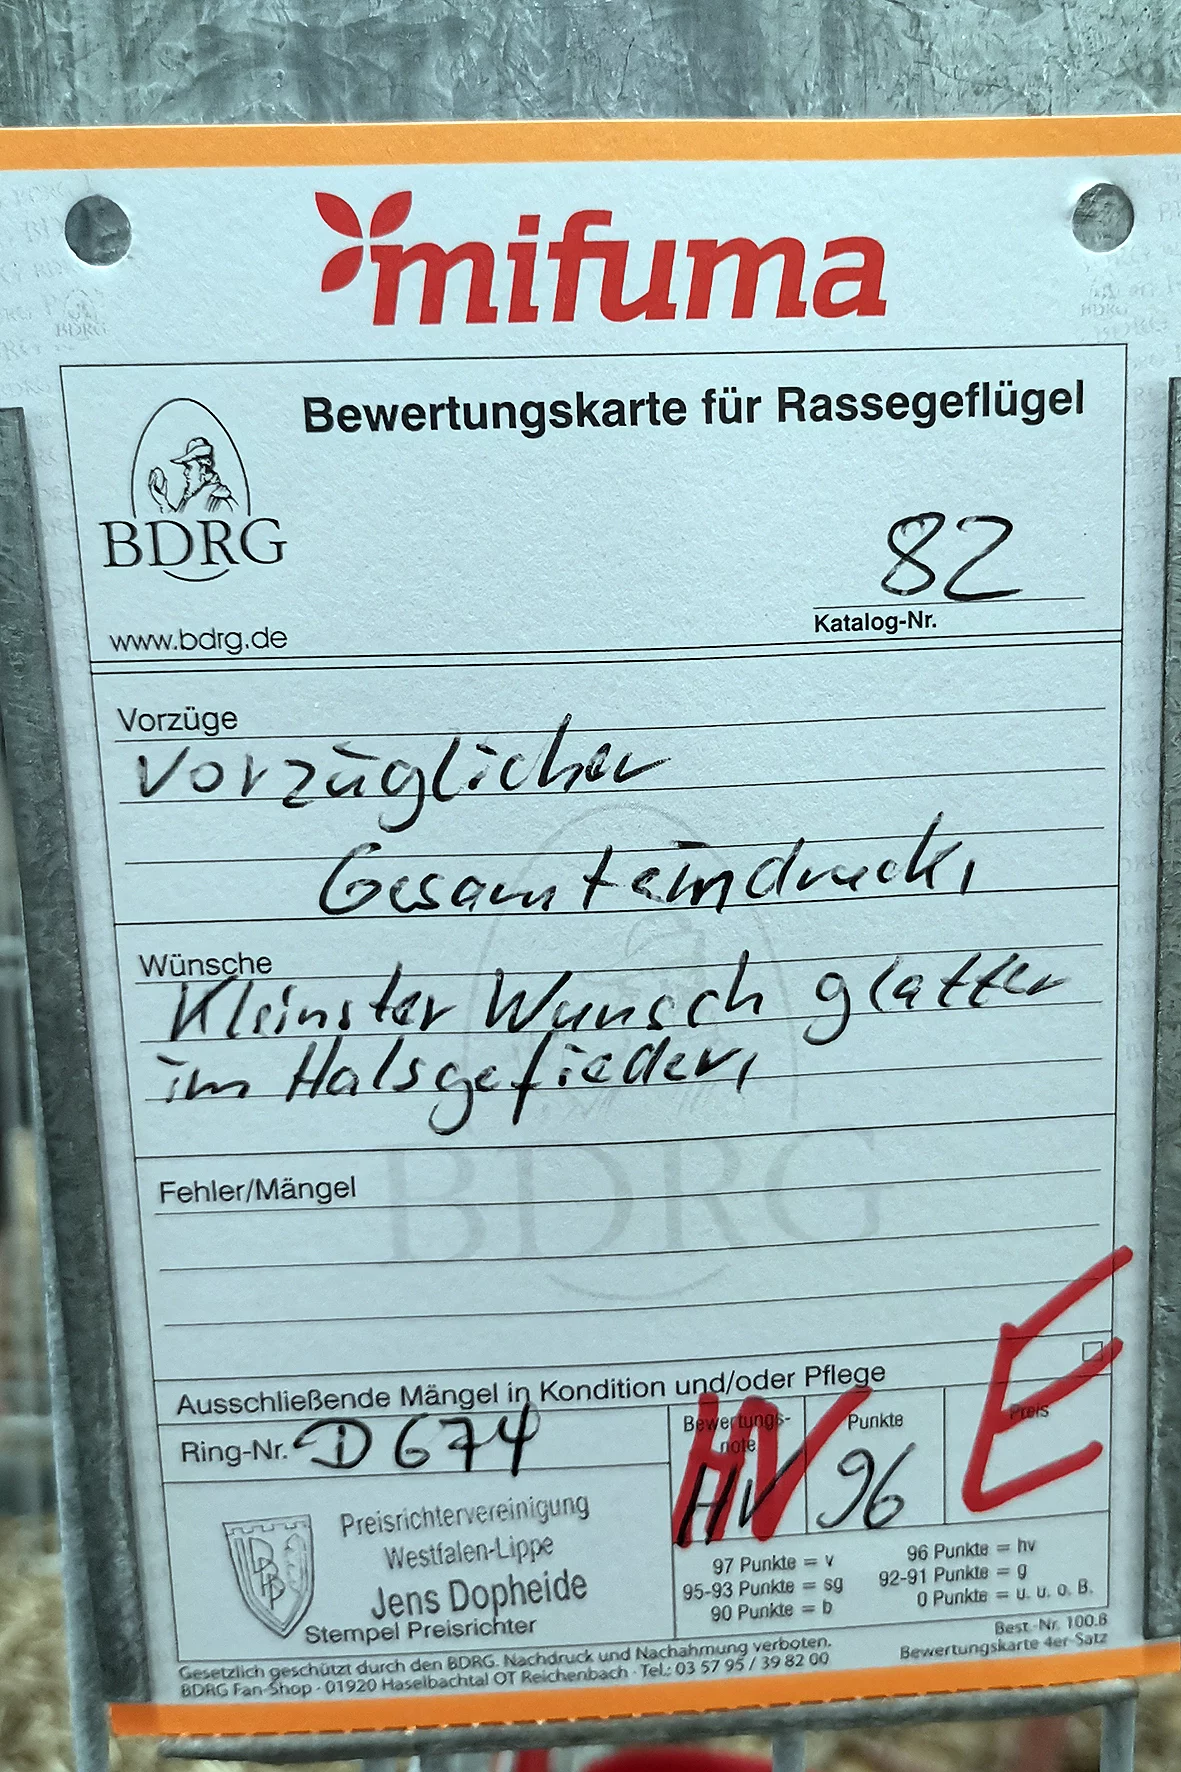 mifuma
Bewertungskarte für Rassegeflügel
BDRG
www.bdrg.de
82
Katalog-Nr.
Vorzüge
Vorzüglicher
Gesamteindruck,
Wünsche
Kleinster Wunsch glatter
im Halsgefieder,
BDRG
Fehler/Mängel
Ausschließende Mängel in Kondition und/oder Pflege
Ring-Nr. D 674
Bewertungs-
note
HV
HV
Punkte
96
Preis
E
Preisrichtervereinigung
Westfalen-Lippe
Jens Dopheide
Stempel Preisrichter
97 Punkte = v
96 Punkte = hv
95-93 Punkte = sg
92-91 Punkte = g
90 Punkte = b
0 Punkte = u. u. o. B.
Gesetzlich geschützt durch den BDRG. Nachdruck und Nachahmung verboten.
BDRG Fan-Shop · 01920 Haselbachtal OT Reichenbach · Tel.: 03 57 95 / 39 82 00
Best.-Nr. 100.B
Bewertungskarte 4er-Satz